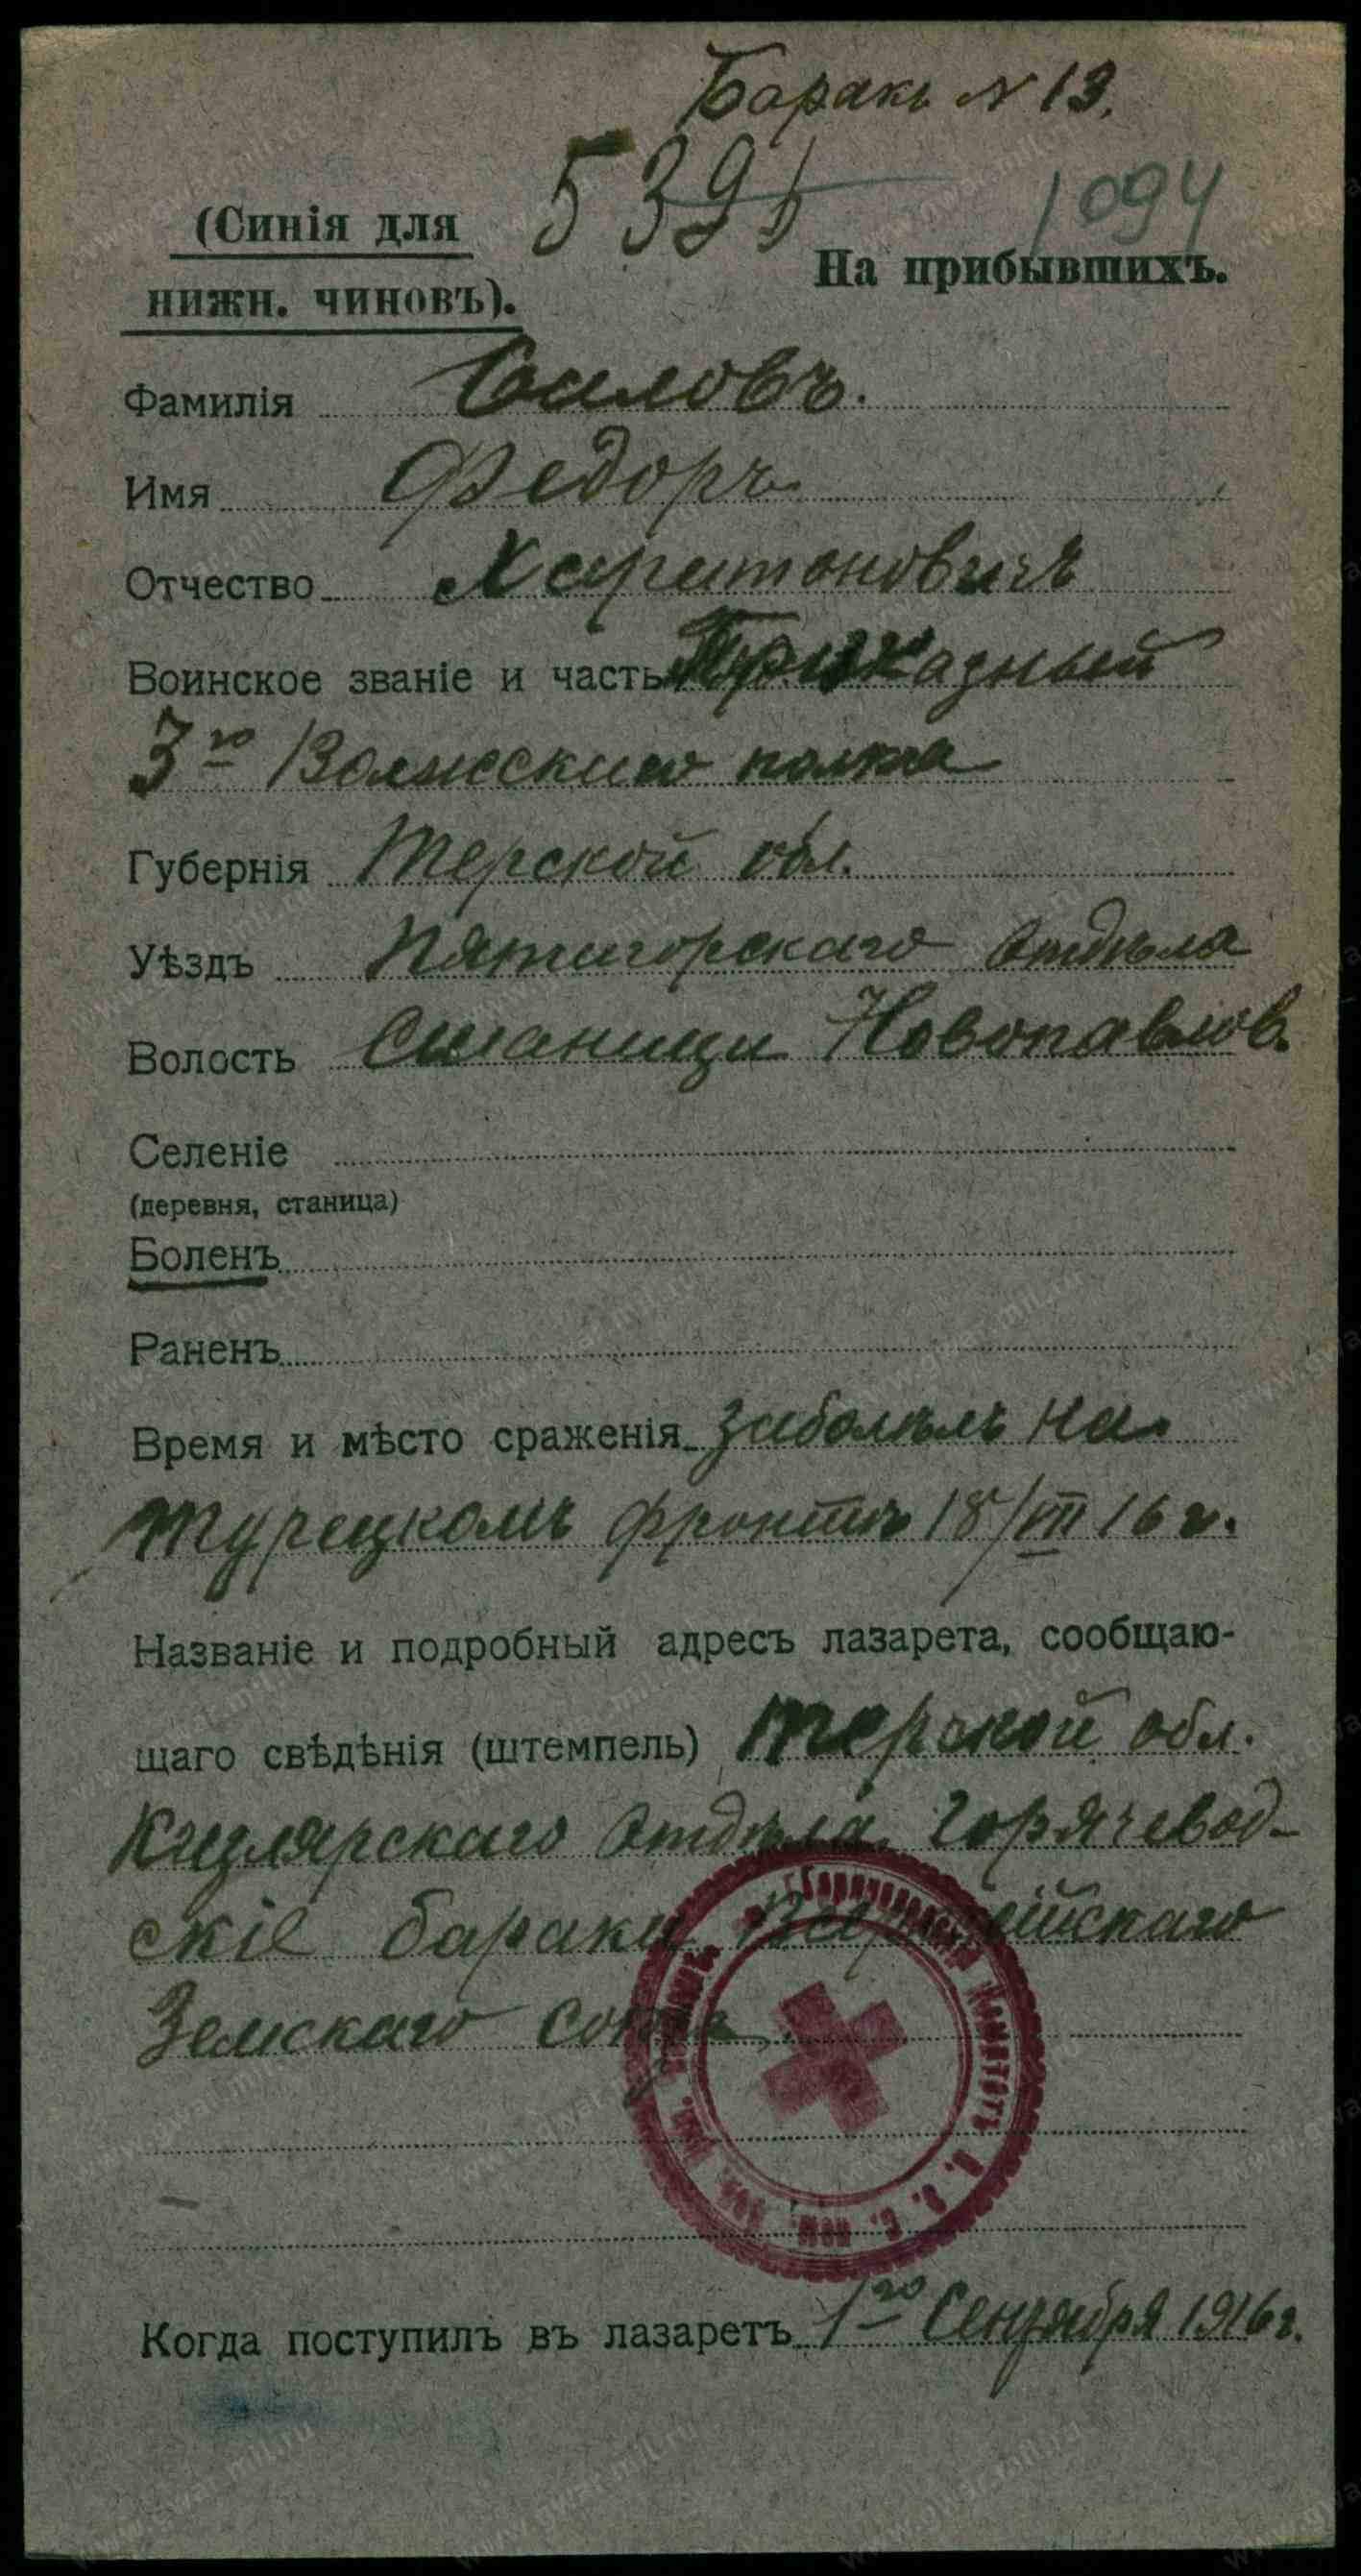 Баракъ № 13.
539
1094
(Синія для
нижн. чиновъ).
На прибывшихъ.
Фамилія Силовъ.
Имя Федоръ
Отчество Харитоновичъ
Воинское званіе и часть Приказный
3го Волжскаго полка
Губернія Терской обл.
Уѣздъ Пятигорскаго отдѣла
Волость Станицы Новопавлов.
Селеніе
(деревня, станица)
Боленъ
Раненъ
Время и мѣсто сраженія заболѣлъ на
турецкомъ фронтѣ 18/VIII 16 г.
Названіе и подробный адресъ лазарета, сообщаю-
щаго свѣдѣнія (штемпель) Терской обл.
Кизлярскаго отдѣла Горячевод-
скіе бараки Всероссійскаго
Земскаго союза
Комитетъ В. З. С.
Когда поступилъ въ лазаретъ 1го Сентября 1916 г.
www.gwar.mil.ru